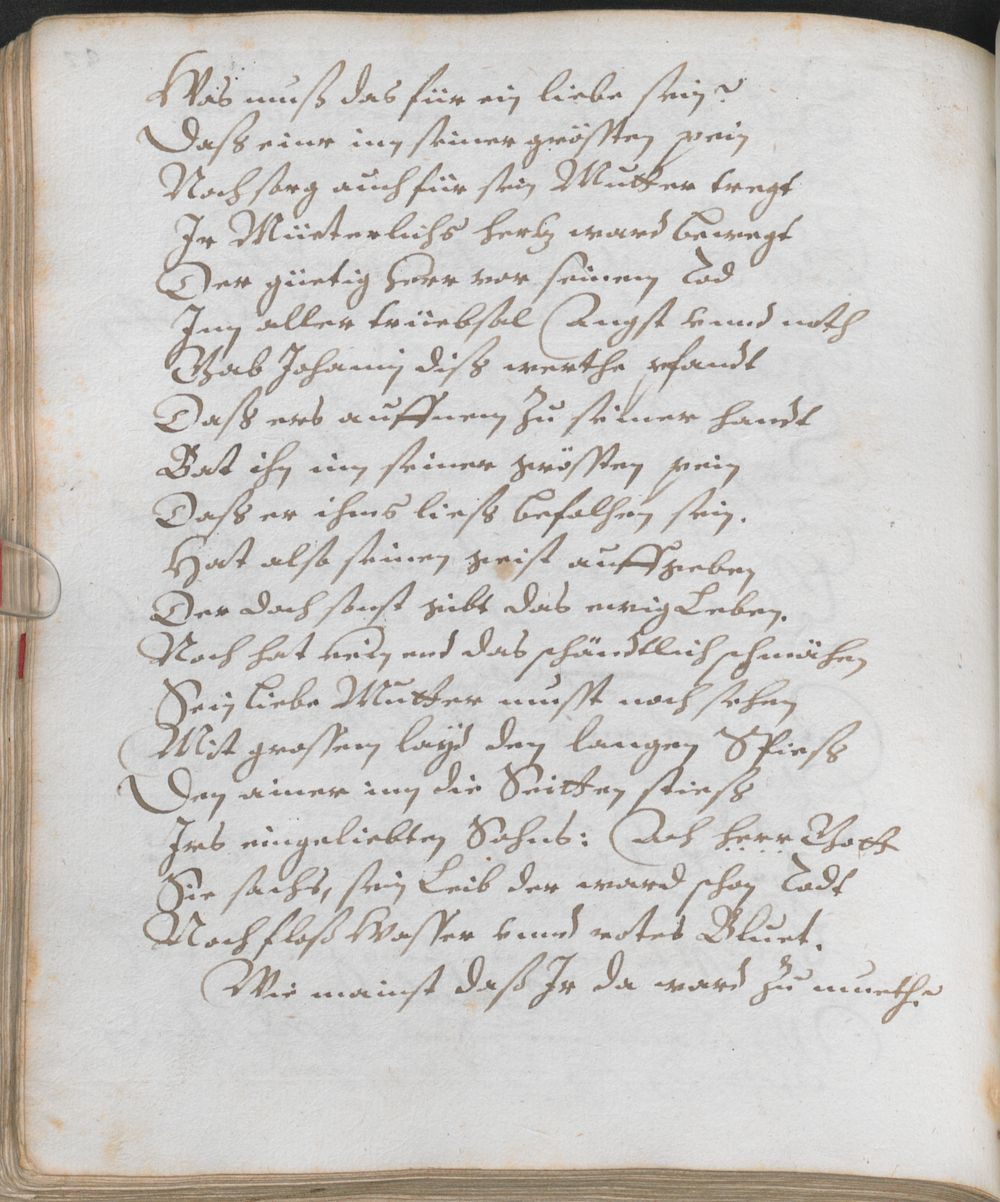 Was muß das für ein liebe sein?
Dass einr inn seiner grössten pein
Noch sorg auch für sein Mutter tregt
Ir Müeterlichs hertz ward bewegt
Der güetig herr vor seinem Tod
Inn aller trüebsal Angst vnnd noth
Gab Johanni diss werthe pfandt
Dass ers auffnem zu seiner handt
Bat ihn inn seiner grössten pein
Dass er ihms liess befolhen sein.
Hat also seinen geist auffgeben
Der doch sonst gibt das ewig Leben.
Noch hat kein end das schändtlich schmähen
Sein liebe Mutter musst noch sehen
Mit grossem layd den langen Spiess
Den ainer inn die Seitten stiess
Irs eingeliebten Sohns: Ach herr Gott
Sie sachs, sein Leib der ward schon Todt
Noch floß Wasser vnnd rotes Bluet.
Wie mainst daß Ir da ward zu mueth?